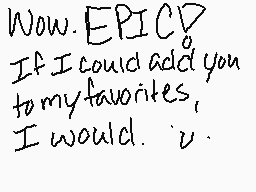 Wow. EPIC!
If I could add you
to my favorites,
I would. :v.